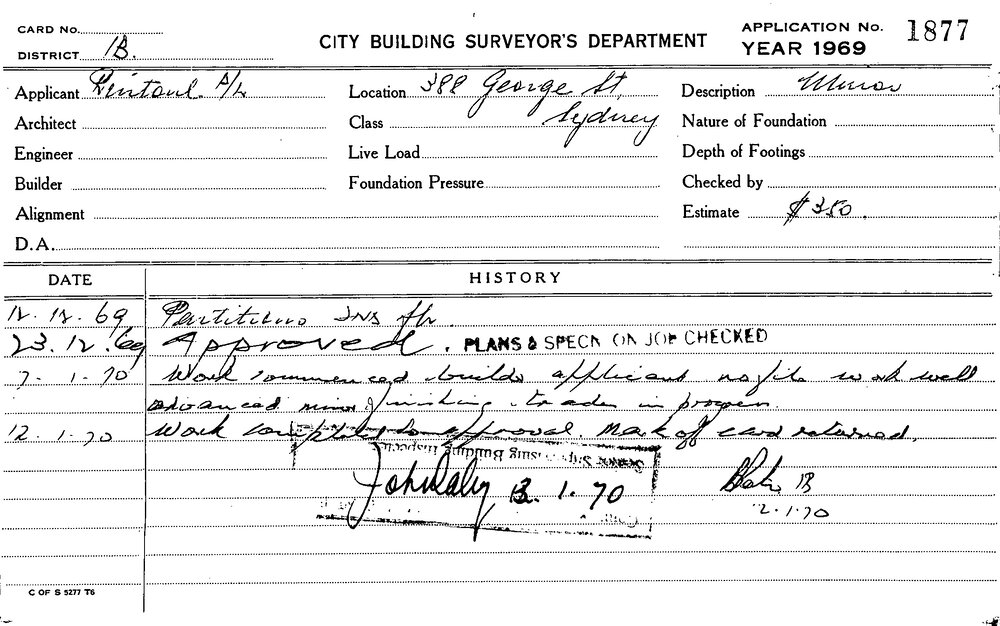 CARD No.
DISTRICT 1B.
CITY BUILDING SURVEYOR'S DEPARTMENT
APPLICATION No. 1877
YEAR 1969
Applicant Rintoul P/L
Location 388 George St,
Sydney
Description Minor
Architect
Class
Nature of Foundation
Engineer
Live Load
Depth of Footings
Builder
Foundation Pressure
Checked by
Alignment
Estimate $350.
D.A.
DATE
HISTORY
12.12.69 Partitions
23.12.69 Approved. PLANS & SPECN ON JOB CHECKED
7.1.70 Work commenced builder applicant no file work well
advanced minor finishing trades in progress.
12.1.70 Work completed to approval. Mark off card returned.
Senior Supervising Building Inspector
John Daly 13.1.70
1B
12.1.70
C OF S 5277 T6